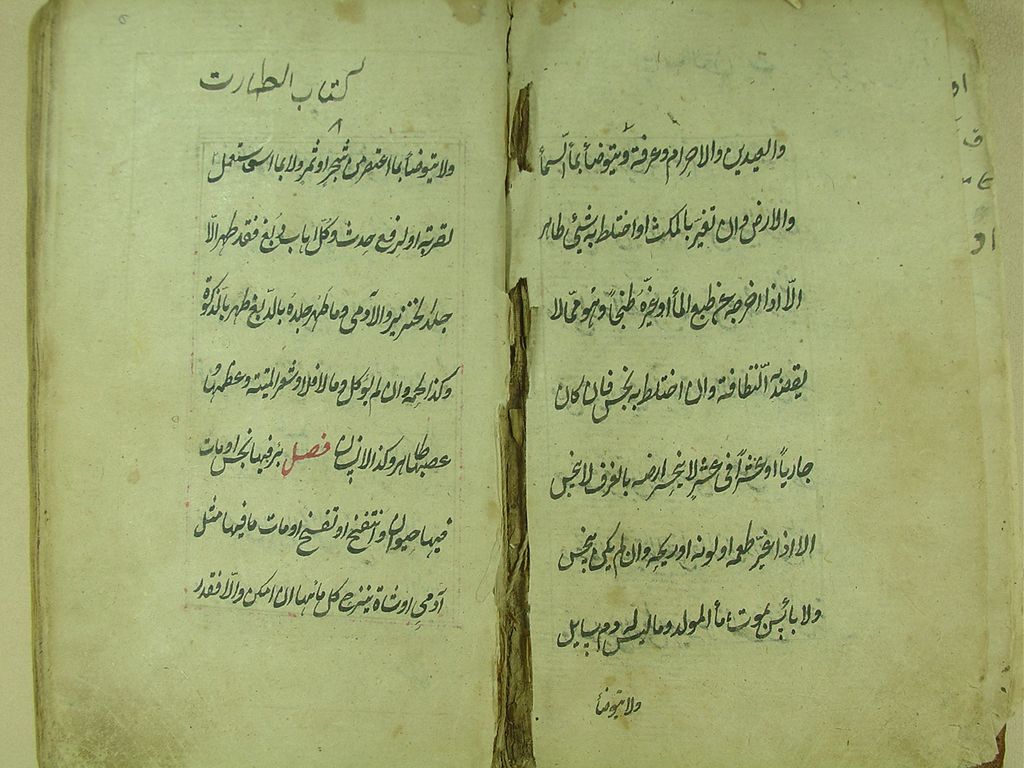 والعيدين والاحرام وعرفة ويتوضأ بمأ السمأ
والارض وان تغير بالمكث او اختلط به شئ طاهر
الا اذا اخرجه عن طبع المأ او غيره طبخا وهو مما لا
يقصد به النظافة وان اختلط به نجس فان كان
جاريا او عشرا فى عشر لا ينجس ارضه بالغرف لا ينجس
الا اذا غير طعمه او لونه او ريحه وان لم يكن ينجس
ولا بأس بموت مأ المولد وما ليس له دم سايل
ولا يتوضأ
كتاب الطهارت
ولا يتوضأ بما اعتصر من شجر او ثمر ولا بما استعمل
لقربة او لرفع حدث وكل اهاب دبغ فقد طهر الا
جلد الخنزير والآدمى وما طهر جلده بالدبغ طهر بالذكوة
وكذا لحمه وان لم يوكل وما لا فلا وشعر الميتة وعظمها و
عصبها طاهر وكذا الانسان فصل بئر فيها نجس او مات
فيها حيوان وانتفخ او تفسخ او مات ما فيها مثل
آدمى او شاة ينزح كل مائها ان امكن والا فقدر